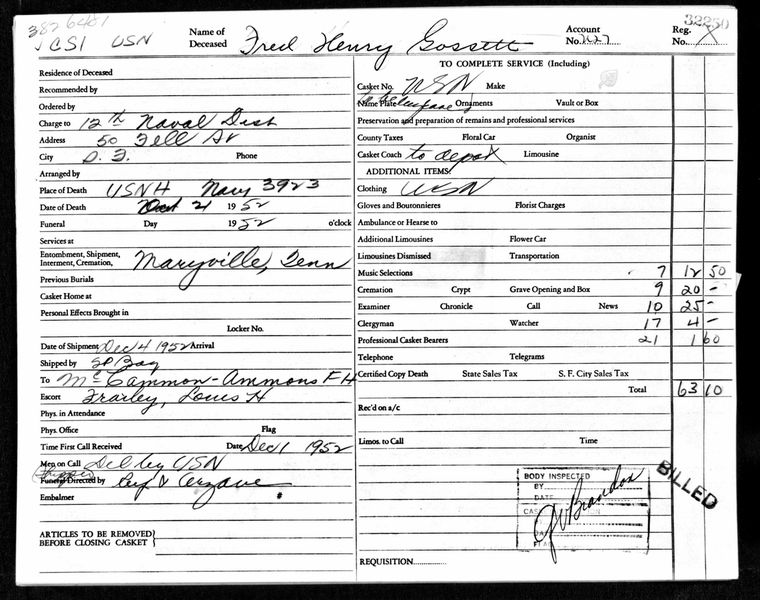 3826481
√ CSI USN
Name of Deceased Fred Henry Gossett
Account No. 1027
32250
Reg. No. X
Residence of Deceased
Recommended by
Ordered by
Charge to 12th Naval Dist
Address 50 Fell St
City S. F. Phone
Arranged by
Place of Death USNH Navy 3923
Date of Death 21 1952
Funeral Day 1952 o'clock
Services at
Entombment, Shipment, Interment, Cremation, Maryville, Tenn
Previous Burials
Casket Home at
Personal Effects Brought in
Locker No.
Date of Shipment Dec 4 1952 Arrival
Shipped by SP Bag
To McCammon-Ammons F H
Escort Frarley, Louis H
Phys. in Attendance
Phys. Office Flag
Time First Call Received Date Dec 1 1952
Men on Call Del by USN
(Shipped)
Funeral Directed by
Embalmer #
ARTICLES TO BE REMOVED BEFORE CLOSING CASKET }
TO COMPLETE SERVICE (Including)
Casket No. USN Make
Name Plate Ornaments Vault or Box
Preservation and preparation of remains and professional services
County Taxes Floral Car Organist
Casket Coach to depot Limousine
ADDITIONAL ITEMS
Clothing USN
Gloves and Boutonnieres Florist Charges
Ambulance or Hearse to
Additional Limousines Flower Car
Limousines Dismissed Transportation
Music Selections 7 12 50
Cremation Crypt Grave Opening and Box 9 20 -
Examiner Chronicle Call News 10 25 -
Clergyman Watcher 17 4 -
Professional Casket Bearers 21 1 60
Telephone Telegrams
Certified Copy Death State Sales Tax S. F. City Sales Tax
Total 63 10
Rec'd on a/c
Limos. to Call Time
BODY INSPECTED
BY
DATE
J V Brandon
BILLED
REQUISITION